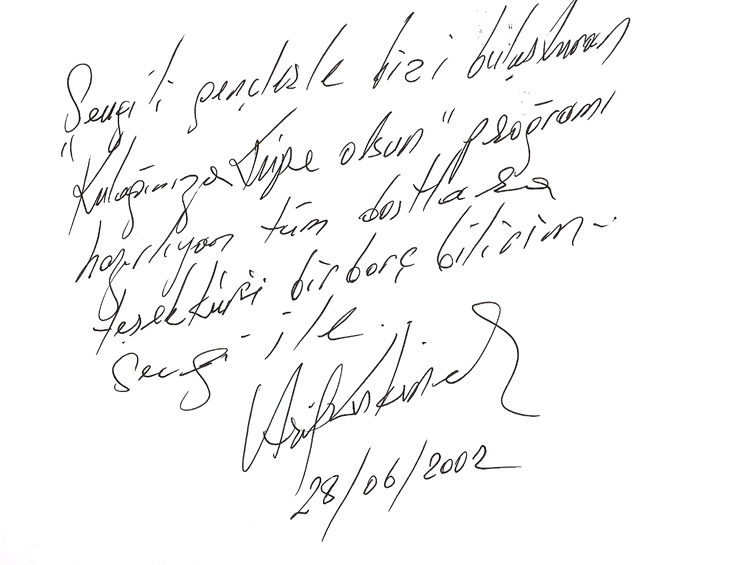 Sevgili gençlerle bizi buluşturan
"Kulağınıza Küpe olsun" proğramı
hazırlıyan tüm dostlara
teşekkürü bir borç bilirim..
Sevgi ile..
28/06/2002